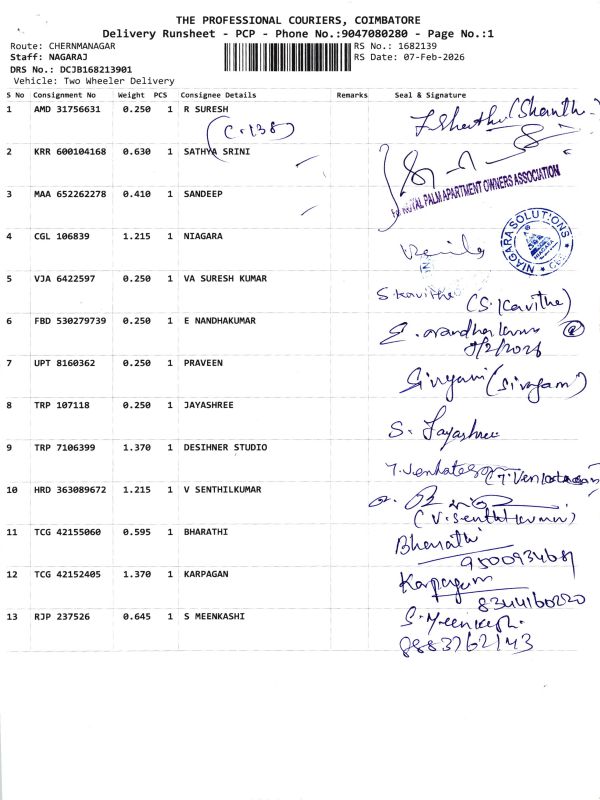 THE PROFESSIONAL COURIERS, COIMBATORE
Delivery Runsheet - PCP - Phone No.:9047080280 - Page No.:1
Route: CHERNMANAGAR
Staff: NAGARAJ
DRS No.: DCJB168213901
Vehicle: Two Wheeler Delivery
RS No.: 1682139
RS Date: 07-Feb-2026
S No Consignment No Weight PCS Consignee Details Remarks Seal & Signature
1 AMD 31756631 0.250 1 R SURESH (Shanthi)
(C-138)
2 KRR 600104168 0.630 1 SATHYA SRINI
ROYAL PALM APARTMENT OWNERS ASSOCIATION
3 MAA 652262278 0.410 1 SANDEEP
4 CGL 106839 1.215 1 NIAGARA
NIAGARA SOLUTIONS
5 VJA 6422597 0.250 1 VA SURESH KUMAR S. Kavitha (S. Kavitha)
6 FBD 530279739 0.250 1 E NANDHAKUMAR E. Nandha kumar
7/2/2026
7 UPT 8160362 0.250 1 PRAVEEN
8 TRP 107118 0.250 1 JAYASHREE S. Jayashree
9 TRP 7106399 1.370 1 DESIHNER STUDIO T. Venkatesan (T. Venkatesan)
10 HRD 363089672 1.215 1 V SENTHILKUMAR
(V. Senthilkumar)
11 TCG 42155060 0.595 1 BHARATHI Bharathi
9500934681
12 TCG 42152405 1.370 1 KARPAGAN Karpagam
8344160220
13 RJP 237526 0.645 1 S MEENKASHI S. Meenkashi
8883762143